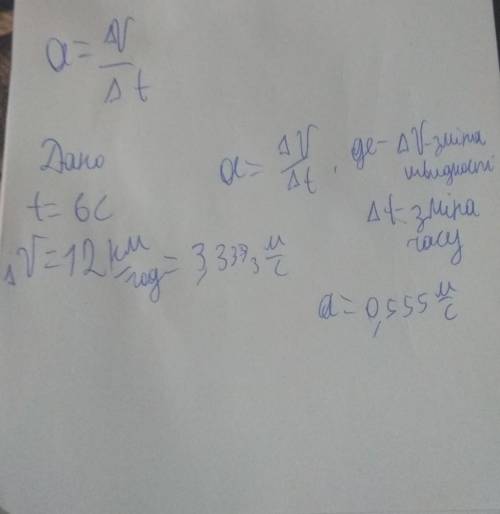 a = ΔV / Δt
Дано
t = 6с
ΔV = 12 км/год = 3,333 м/с
a = ΔV / Δt , де - ΔV - зміна
швидкості
Δt - зміна
часу
a = 0,555 м/с